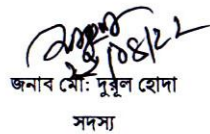 ২৮/০৪/২২
জনাব মো: দুরূল হোদা
সদস্য